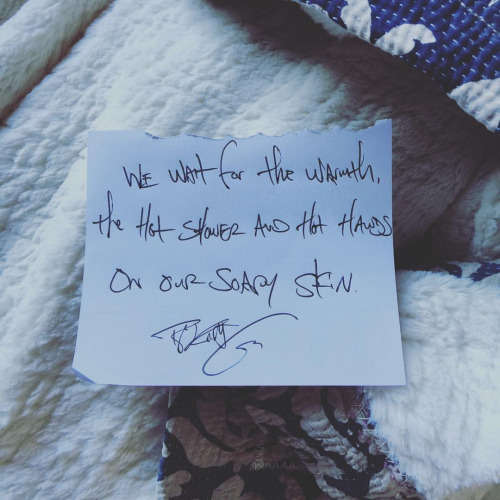 WE WAIT for the WARMTH,
the Hot SHOWER AND Hot HANDS
ON OUR SOAPY SKIN.